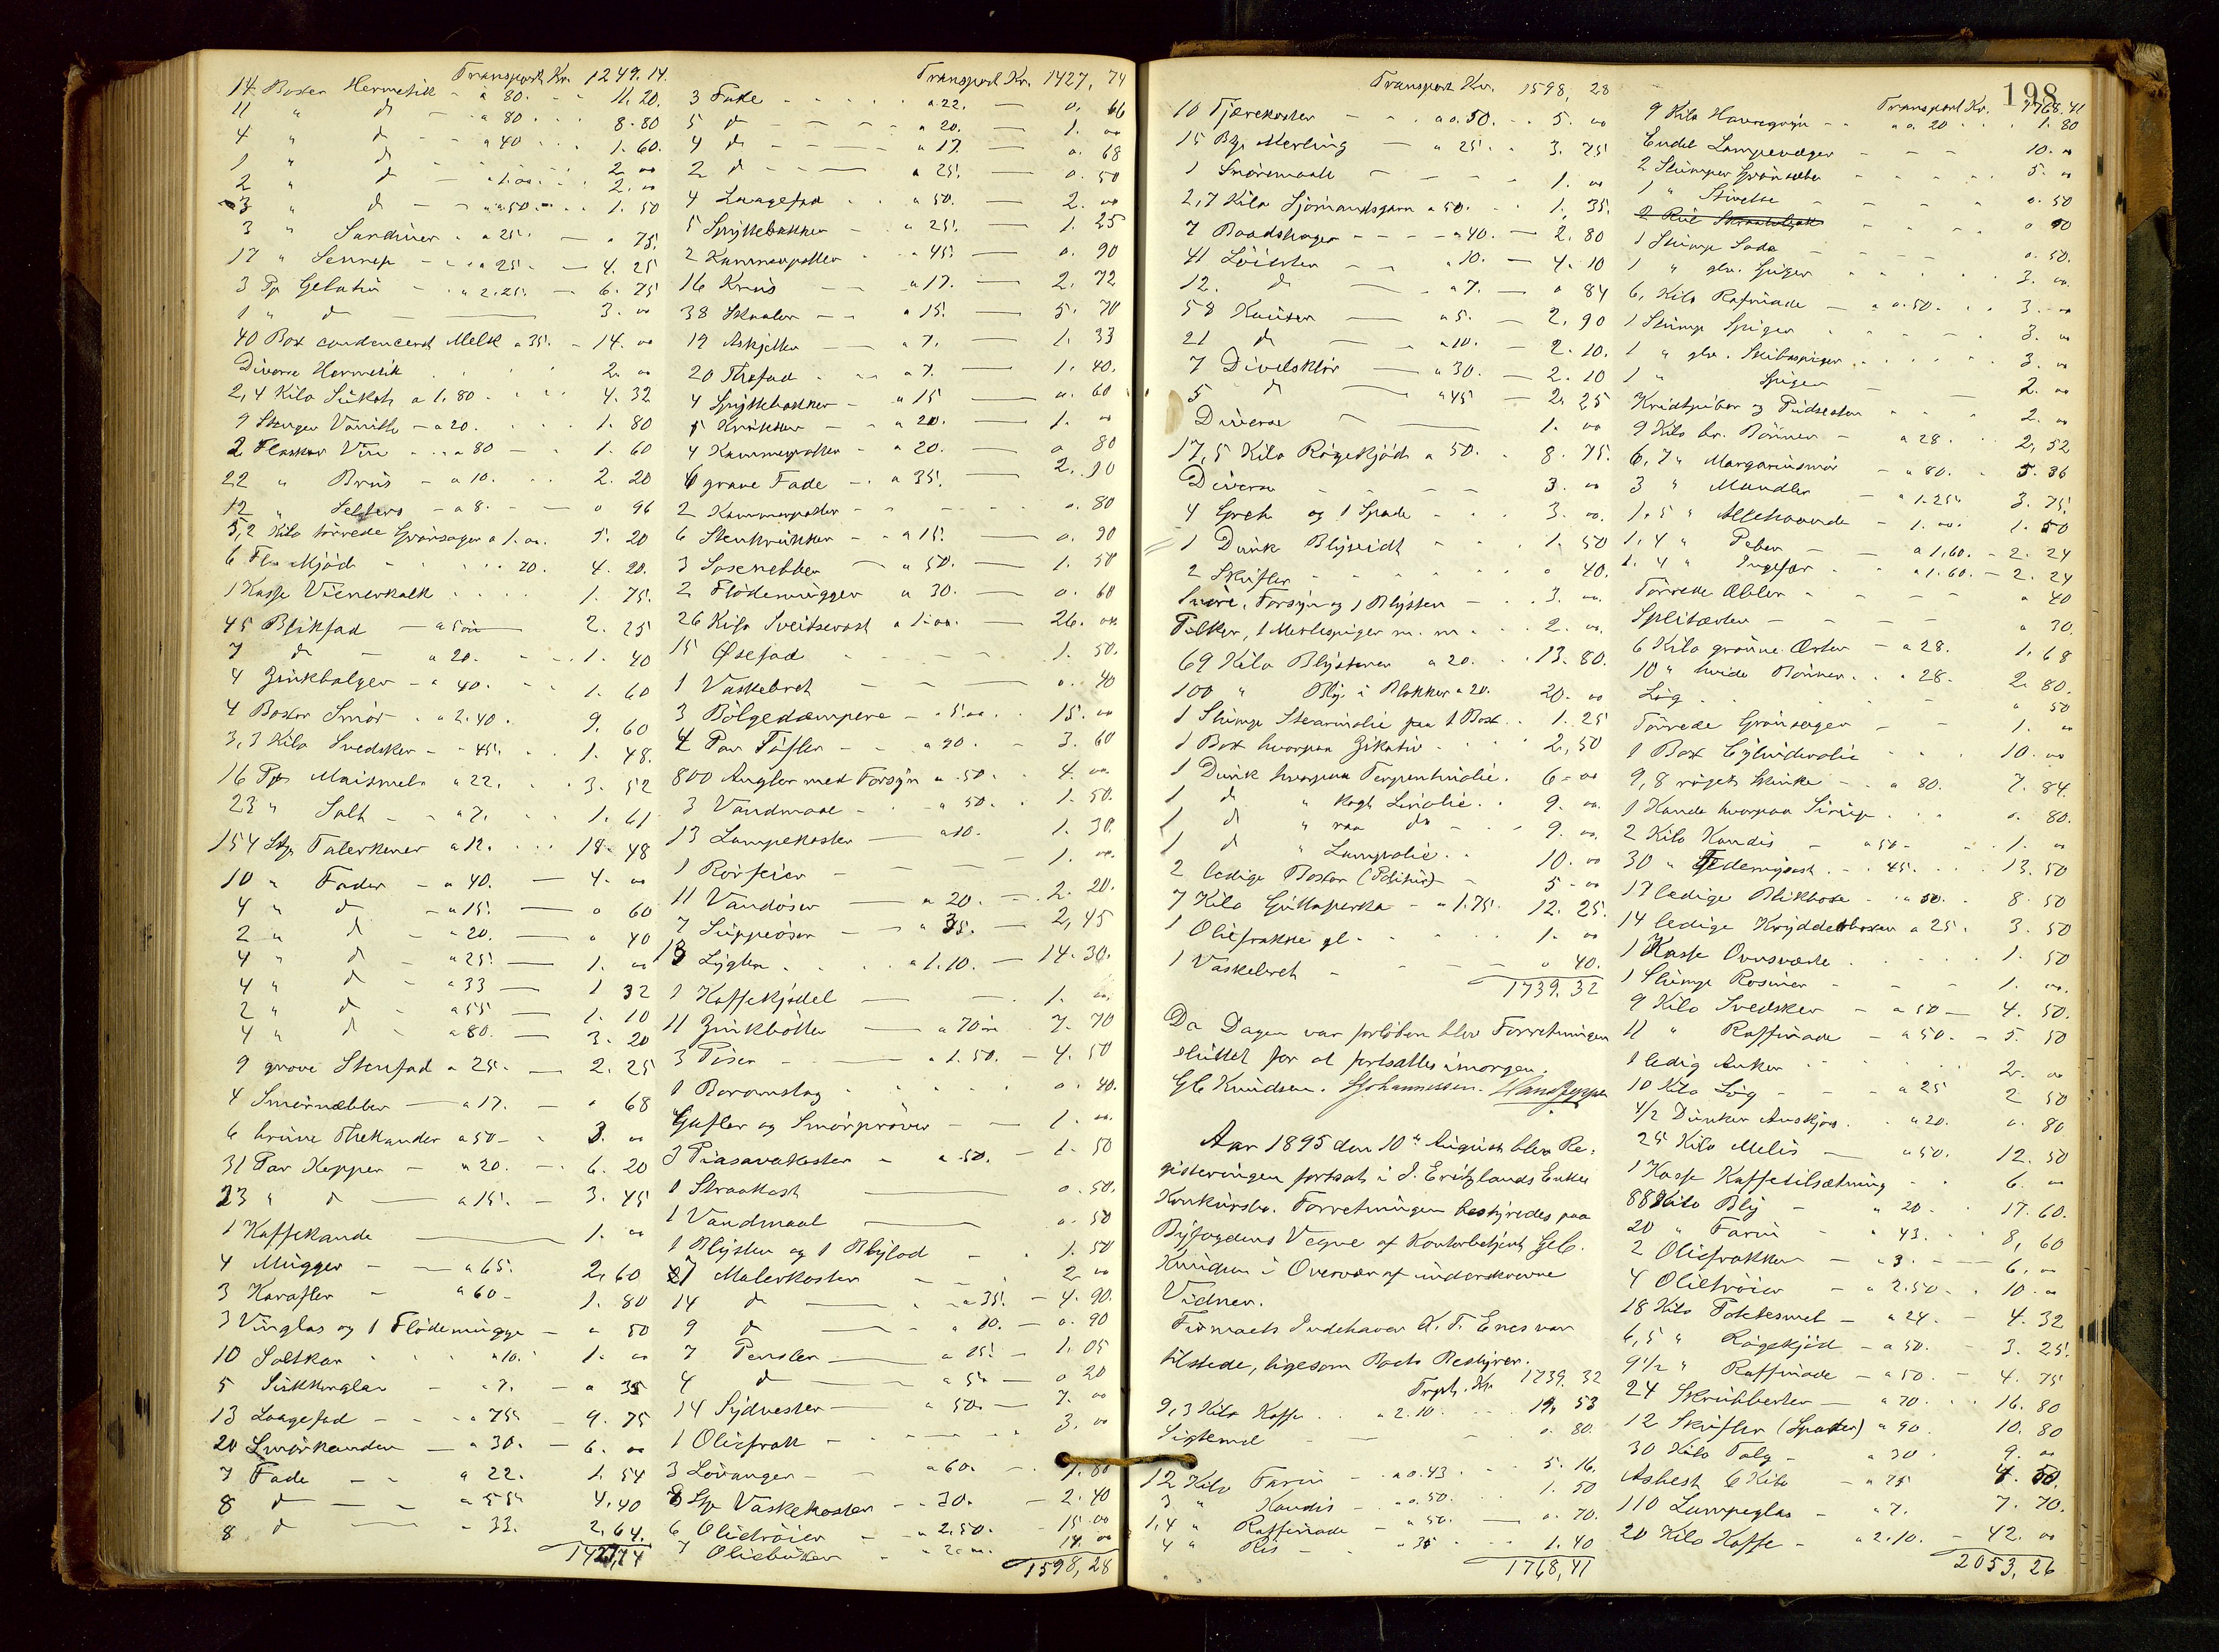 Transport Kr. 1249.14.
14 Boxer Hermetik - a 80. - 11.20.
11 " do - a 80 . . 8.80
4 " do - a 40 . . 1.60.
1 " do - - 2. "
2 " do - a 1.00. . . 2. "
3 " do - a 50 . . 1.50
3 " Sardiner - a 25. - " 75.
17 " Sennep - - a 25. - 4.25
3 Pk Gelatin - a 2.25. - 6.75
1 " do - 3. "
40 Box condenceret Melk a 35. - 14. "
Diverse Hermetik . . . 2. "
2,4 Kilo Sukat a 1.80 . . 4.32
9 Stenger Vanille - a 20. . . 1.80
2 Flasker Vin - a 80 - 1.60
22 " Brus - a 10. . . 2.20
12 " Selters - a 8. - " 96
5,2 Kilo tørrede Grønsager a 1.00. 5.20
6 Fl. Mjød - . . 70. 4.20.
1 Kasse Vienerkalk . . . 1.75.
45 Blikfad - a 5 øre 2.25
7 do - a 20. - . 1.40
4 Zinkbalger - a 40. - 1.60
4 Boxer Smør - a 2.40. 9.60
3,3 Kilo Svedsker - - 45. . 1.48.
16 Pk Maismel a 22. . . 3.52
23 " Salt - - a 7. . . 1.61
154 Stk Talerkener a 12. . . 18.48
10 " Fader - a 40. - 4. "
4 " do - a 15. - " 60
2 " do - a 20. - " 40
4 " do - a 25. - 1. "
4 " do - a 33 - 1.32
2 " do - a 55 - 1.10
4 " do - a 80. - 3.20
9 grove Stenfad a 25. - 2.25
4 Smørnæbber - a 17. - " 68
6 brune Thekander a 50 - . 3. "
31 Par Kopper - a 20. - . 6.20
23 " do - a 15. - 3.45
1 Kaffekande - 1. "
4 Mugger - a 65. 2,60
3 Karafler - a 60 - 1.80
3 Vinglas og 1 Flødemugge - " 50
10 Saltkar . a 10. . 1. "
5 Sukkerglas - a 7. - " 35
13 Laagefad - - a 75 - 9.75
20 Smørkander - a 30. - 6. "
7 Fade - - a 22. 1.54
8 do - - a 55 4.40
8 do - - 33. 2,64.
1427,74
Transport Kr. 1427,74
3 Fade . . . a 22. - 0.66
5 do - - - a 20. - 1. "
4 do - - - a 17. - 0.68
2 do - - - a 25. - 0.50
4 Laagefad . . a 50. - 2. "
5 Spyttebakker - a 25. - 1.25
2 Kammerpotter . . a 45. - 0.90
16 Krus - - a 17. - 2.72
38 Skaaler - - a 15. - 5.70
19 Askjetter - a 7. - 1.33
20 Thefad . - a 7. - 1.40.
4 Spyttebakker - a 15 - 0.60
5 Krukker - - a 20. - 1. "
4 Kammerpotter - a 20. " 80
6 grave Fade - . a 35. - 2.10
2 Kammerpotter - - - 0.80
6 Stenkrukker - - a 15. - 0.90
3 Sosenebber - a 50. - 1.50
2 Flødemugger a 30. - 0.60
26 Kilo Sveitserost a 1.00. - 26. "
15 Øsefad - - - 1.50.
1 Vaskebret - - 0.40
3 Bølgedæmpere - a 5.00. . 15. "
4 Par Tøfler - - a 90. - 3.60
800 Angler med Forsyn a .50. . 4. "
3 Vandmaal - - a 50. . 1.50.
13 Lampekoster - a 10. 1.30.
1 Rørfeier - - - 1. "
11 Vandøser - a 20. - 2.20.
7 Suppeøser - - a 35. - 2,45
13 Lygter . . . a 1.10. - 14.30.
1 Kaffekjedel - - . 1. "
11 Zinkbøtter - a 70 øre 7.70
3 Pøser - - a 1.50. - 4.50
1 Baromslag . . . 0.40.
Gafler og Smørprøver - - 1. "
3 Piasavakoster - a 50. - 1.50
1 Straakost - 0.50.
1 Vandmaal - 0.50
1 Blyster og 1 Blylod - . 1.50
7 Malerkoster - - 2. "
14 do - - a 35. - 4.90.
9 do - a 10. - 0.90
7 Pensler - a 15. - 1,05
4 do - a 5 - 0 20
14 Sydvester - a 50. - 7. "
1 Oliefrak - . . . 3. "
3 Løvanger - - a 60. - 1.80
8 Stk Vaskekoster - - 30. - 2.40
6 Olietrøier - - a 2,50. - 15.00
7 Oliebukser - a 2. - 14. "
1598,28
Transport Kr. 1598,28
10 Tjærekoster - . a 0.50. . . 5. "
15 B. Merling - a 25. . 3.75
1 Smøremaal - - - 1. "
2,7 Kilo Sjømandsgarn a 50. . . 1,35.
7 Baadshager - - - a 40. - 2.80
41 - - a 10. - 4.10
12. do - a 7. - " 84
58 Kauser - a 5. - 2,90
21 do - a 10. - 2.10.
7 Divelsklør - a 30. - 2.10
5 do a 45 - 2,25
Diverse - - 1. "
17,5 Kilo Røgekjød a 50. . 8.75.
Diverse - - - 3. "
4 Greb og 1 Spade - . . 3. "
1 Dunk Blyhvidt - . . 1.50
2 Skufler - - - - " 40.
Snøre, Forsyn og 1 Blyster - . . 3. "
Pilker, 1 Merlespiger m. m. . . 2. "
69 Kilo Blystener a 20. . . 13.80.
100 " Bly i Blokker a 20. 20. "
1 Slump Stearinolie paa 1 Box . 1.25
1 Box hvorpaa Zikativ . . . 2,50
1 Dunk hvorpaa Terpentinolie. 6. "
1 do " kogt Linolie . . 9. "
1 do " raa do - . . 9. "
1 do " Lampolie . . 10. "
2 ledige Boxer (Politur) - - 5. "
7 Kilo Guttaperka - a 1.75. 12.25.
1 Oliefrakke gl. . . . 1. "
1 Vaskebret - - - " 40.
1739.32
Da Dagen var forløben blev Forretningen
sluttet for at fortsættes imorgen.
Chr. Knudsen. Johannessen.
Aar 1895 den 10de August blev Re-
gistreringen fortsat i J. Eritzlands Enkes
Konkursbo. Forretningen bestyredes paa
Byfogdens Vegne af Kontorbetjent Chr.
Knudsen i Overvær af underskrevne
Vidner.
Firmaets Indehaver K. T. Enes var
tilstede, ligesom Boets Bestyrer.
Trpt. Kr. 1739.32
9,3 Kilo Kaffe . . a 2.10. . . 19,53
Sigtemel - - - 0.80.
12 Kilo Farin - . a 0.43. . . 5.16.
3 " Kandis - . a 0.50. . . 1.50
1,4 " Raffinade - a 50. - 0.70.
4 " Ris - . a 35 . . 1.40
1768,41
198
Transport Kr. 1768.41
9 Kilo Havregryn - - a 0.20 . . 1.80
Endel Lampevæger - - - 10. "
2 Slumper Grønsæbe . . . 5. "
1 " Stivelse - - - 0.50
1 Slump Soda - - - 0.50.
1 " glv. Spiger . . . 3. "
6, Kilo Rafinade - a 0.50. . . 3. "
1 Slump Spiger . . . 3. "
1 " glv. Skibsspiger . . . 3. "
1 " Spiger - 2. "
Kridtpiber og Pudsesten . . . 2. "
9 Kilo br. Bønner - a 28. . . 2,52
6,7 " Margarinsmør - a 80. . 5.36
3 " Mandler - a 1.25. 3.75.
1,5 " Allehaande - 1.00. 1.50
1,4 " Peber - - a 1,60. - 2.24
1,4 " Ingefær . . a 1.60. - 2.24
Tørrede Æbler - - - " 40
Spliterter - - - " 30.
6 Kilo grønne Erter - a 28. 1.68
10 " hvide Bønner . . a 28. 2.80.
Løg . . . " 50
Tørrede Grønsager - - 1. "
1 Box Cylinderolie - . 10. "
9,8 røget Skinke - . a 80. 7.84.
1 Kande hvorpaa Sirup . . . 0.80.
2 Kilo Kandis - a 50 - . 1. "
30 " Gedemysost . . 45. . . 13.50
17 ledige Blikbokse - . a 50. . 8.50
14 ledige Krydderboxer a 25. 3.50
1 Kasse Ovnsværte . . . 1.50
1 Slump Rosiner - - - 1. "
9 Kilo Svedsker - a 50 - 4.50.
11 " Raffinade - a 50. - 5.50
1 ledig Anker . . . 2. "
10 Kilo Løg - - - a 25 2.50
4/2 Dunker Anskjos . . a 20. 0.80
25 Kilo Melis - a 50. 12.50
1 Kasse Kaffetilsætning . . 6. "
88 Kilo Bly - " 20 . 17.60.
20 " Farin - " 43. . . 8,60
2 Oliefrakker - a 3. - 6. "
4 Olietrøier - a 2.50 . . 10. "
18 Kilo Potetesmel - a 24. - 4.32
6,5 " Røgekjød - a 50. - 3.25.
9 1/2 " Raffinade - a 50. - 4.75
24 Skrubberter - a 70. . . 16.80
12 Skufler (Spader) a 90. 10.80
30 Kilo Talg - a 30 . 9. "
Asbest 6 Kilo - a 75 4.50.
110 Lampeglas - a 7. 7.70.
20 Kilo Kaffe - a 2.10. - 42. "
2053,26